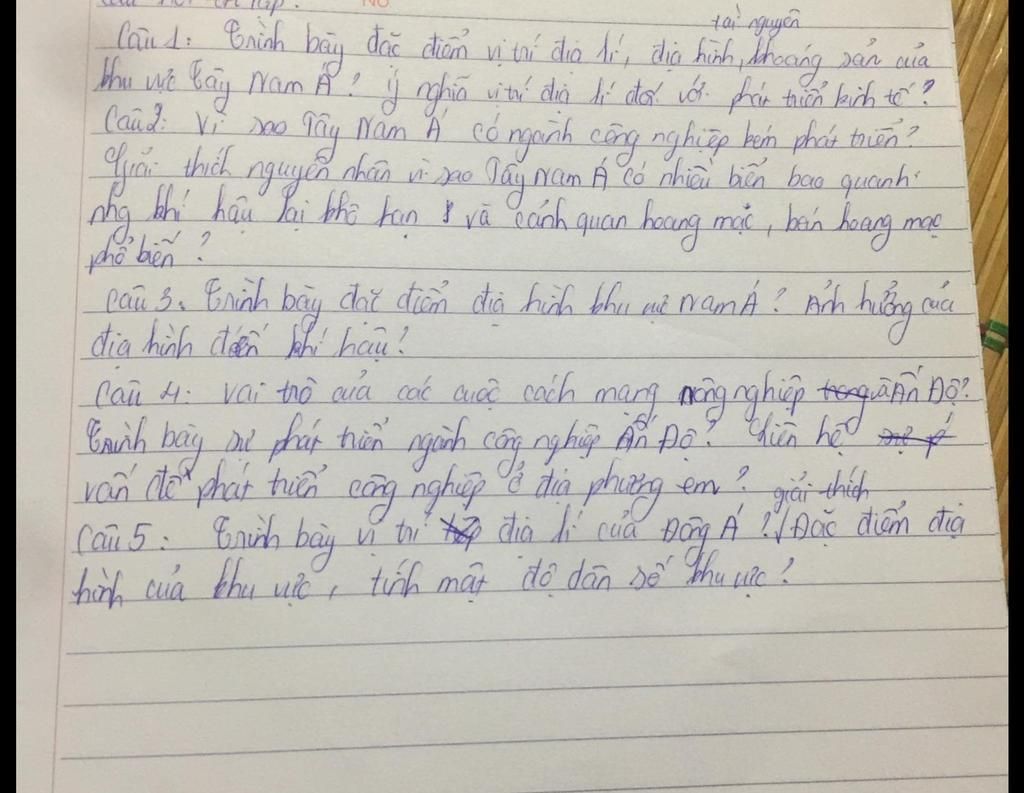 tài nguyên
Câu 1: Trình bày đặc điểm vị trí địa lí, địa hình, khoáng sản của
khu vực Tây Nam Á? ý nghĩa vị trí địa lí đối với phát triển kinh tế?
Câu 2: Vì sao Tây Nam Á có ngành công nghiệp kém phát triển?
Giải thích nguyên nhân vì sao Tây Nam Á có nhiều biển bao quanh
nhg khí hậu lại khô hạn và cảnh quan hoang mạc, bán hoang mạc
phổ biến?
Câu 3: Trình bày đặc điểm địa hình khu vực Nam Á? Ảnh hưởng của
địa hình đến khí hậu?
Câu 4: Vai trò của các cuộc cách mạng nông nghiệp ở Ấn Độ?
Trình bày sự phát triển ngành công nghiệp Ấn Độ? Liên hệ
vấn đề phát triển công nghiệp ở địa phương em? giải thích
Câu 5: Trình bày vị trí địa lí của Đông Á? Đặc điểm địa
hình của khu vực, tính mật độ dân số khu vực?